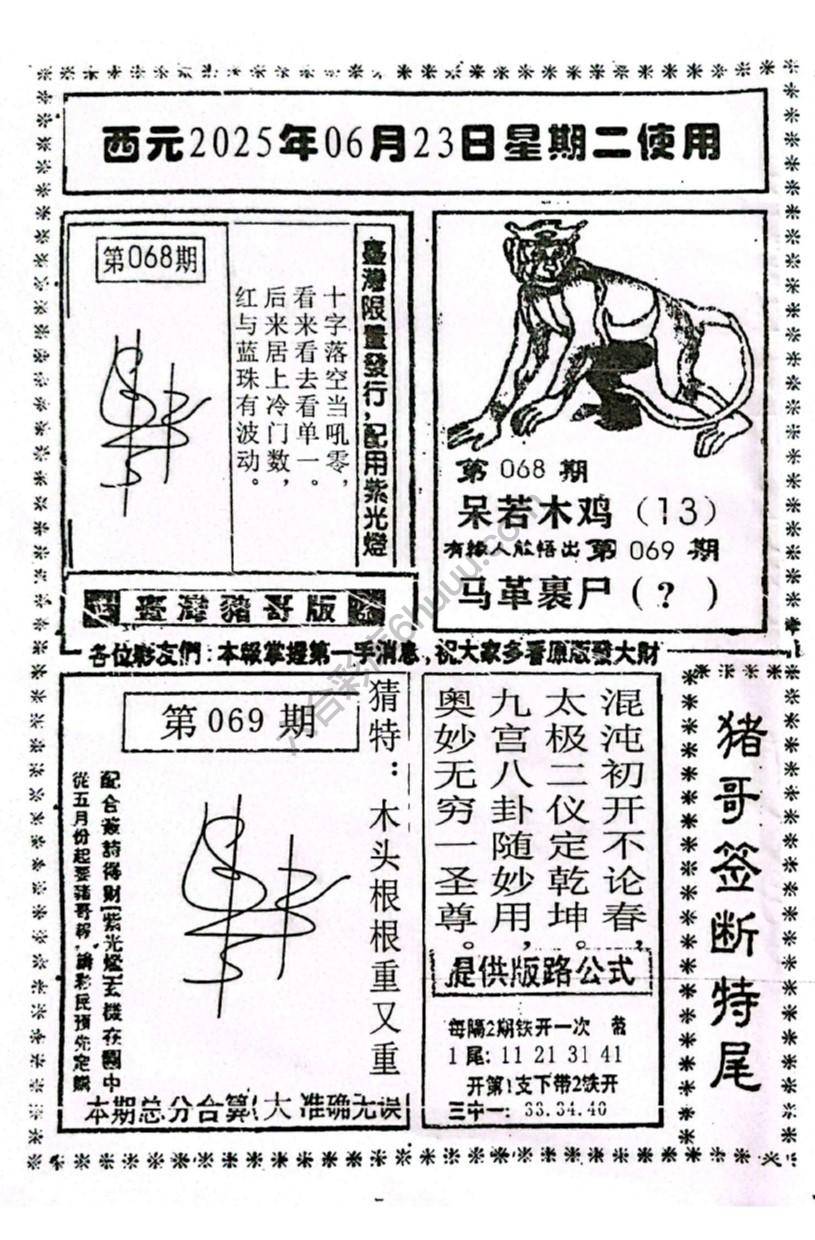 西元2025年06月23日星期二使用
第068期
臺灣限量發行,配用紫光燈
十字落空当吼零,
看来看去看单一。
后来居上冷门数,
红与蓝珠有波动。
臺灣豬哥版
第 068 期
呆若木鸡 (13)
有緣人能悟出 第 069 期
马革裹尸 (?)
各位彩友們:本報掌握第一手消息,祝大家多看原版發大財
第069期
猜特:木头根根重又重
配合簽詩得财[紫光燈]玄機在圖中
從五月份起要豬哥報,請彩民預先定購
本期总分合算(大 准确无误
混沌初开不论春,
太极二仪定乾坤。
九宫八卦随妙用,
奥妙无穷一圣尊。
提供版路公式
每隔2期铁开一次
1尾: 11 21 31 41
开第1支下带2铁开
三中一: 33.34.40
猪哥签断特尾
六合彩库6huuu.com